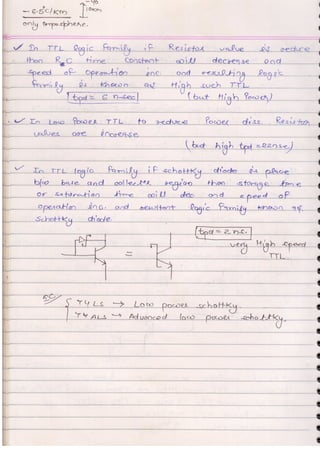 - 6.5°C/km
only troposphere.
✓ In TTL logic family if Resistor value is reduce
than RC time constant will decrease and
speed of operation inc. and resulting logic
family is known as High such TTL
tpd = 6 nsec (but High Power)
✓ In Low Power TTL to reduce Power diss. Resistor
values are increase.
(but high tpd = 33nsec)
✓ In TTL logic family if schottky diode is place
b/w base and collector region than storage time
or saturation time will dec and speed of
operation inc. and resultant logic family known as
Schottky diode.
tpd = 2 ns.
very High speed
TTL.
=
74 LS → Low power schottky.
74 ALS → Advanced low power schottky.